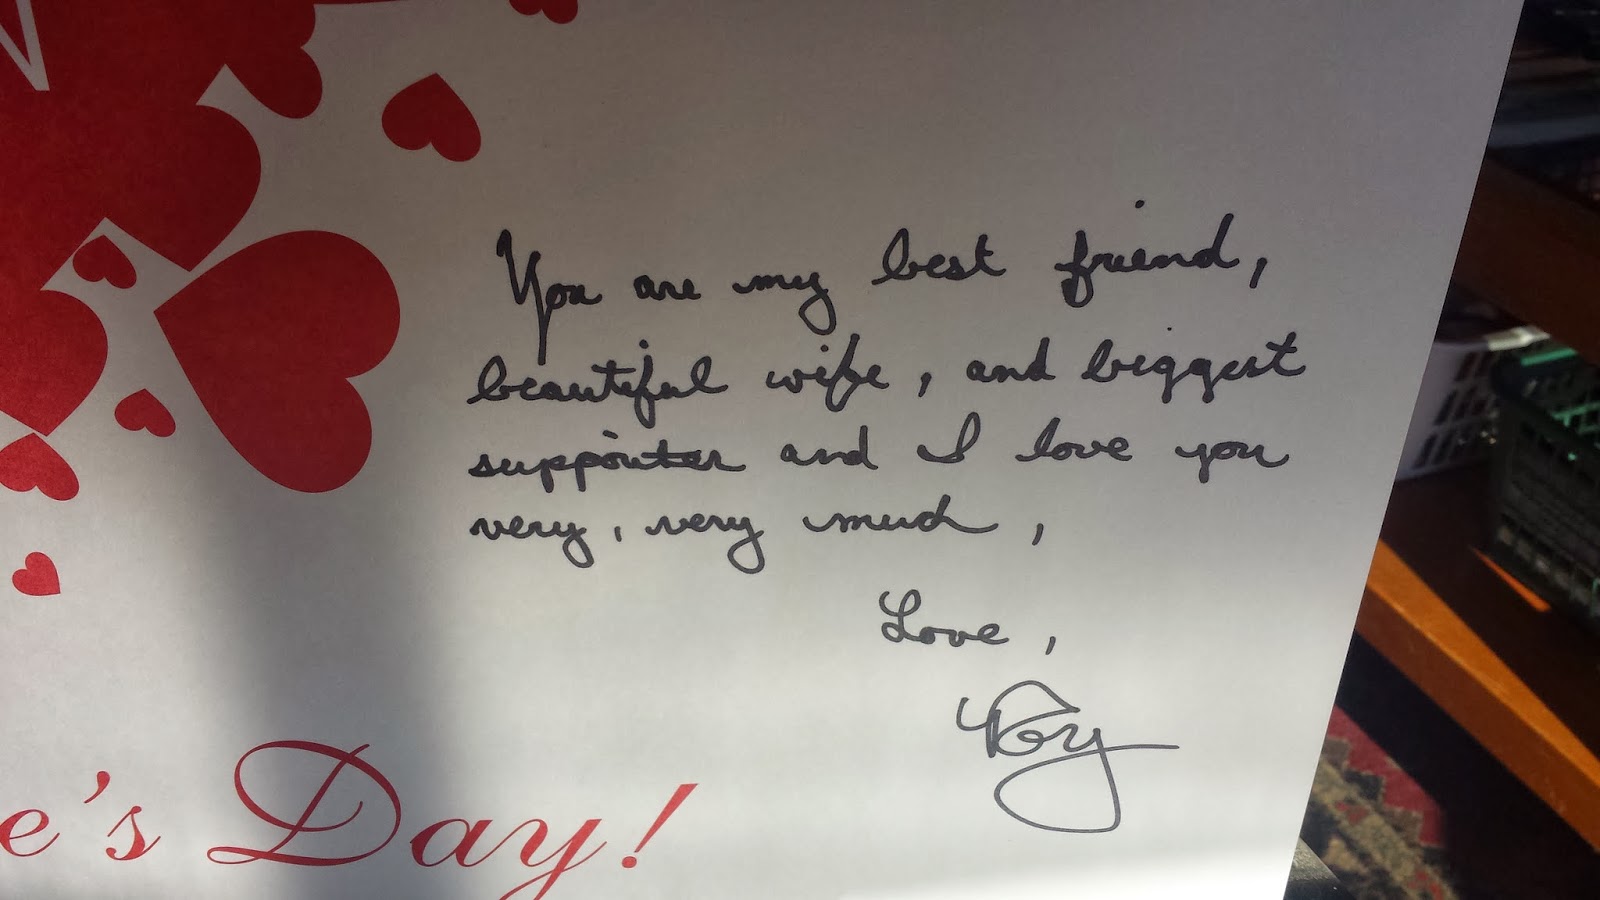 You are my best friend,
beautiful wife, and biggest
supporter and I love you
very, very much,
Love,
Roy
e's Day!